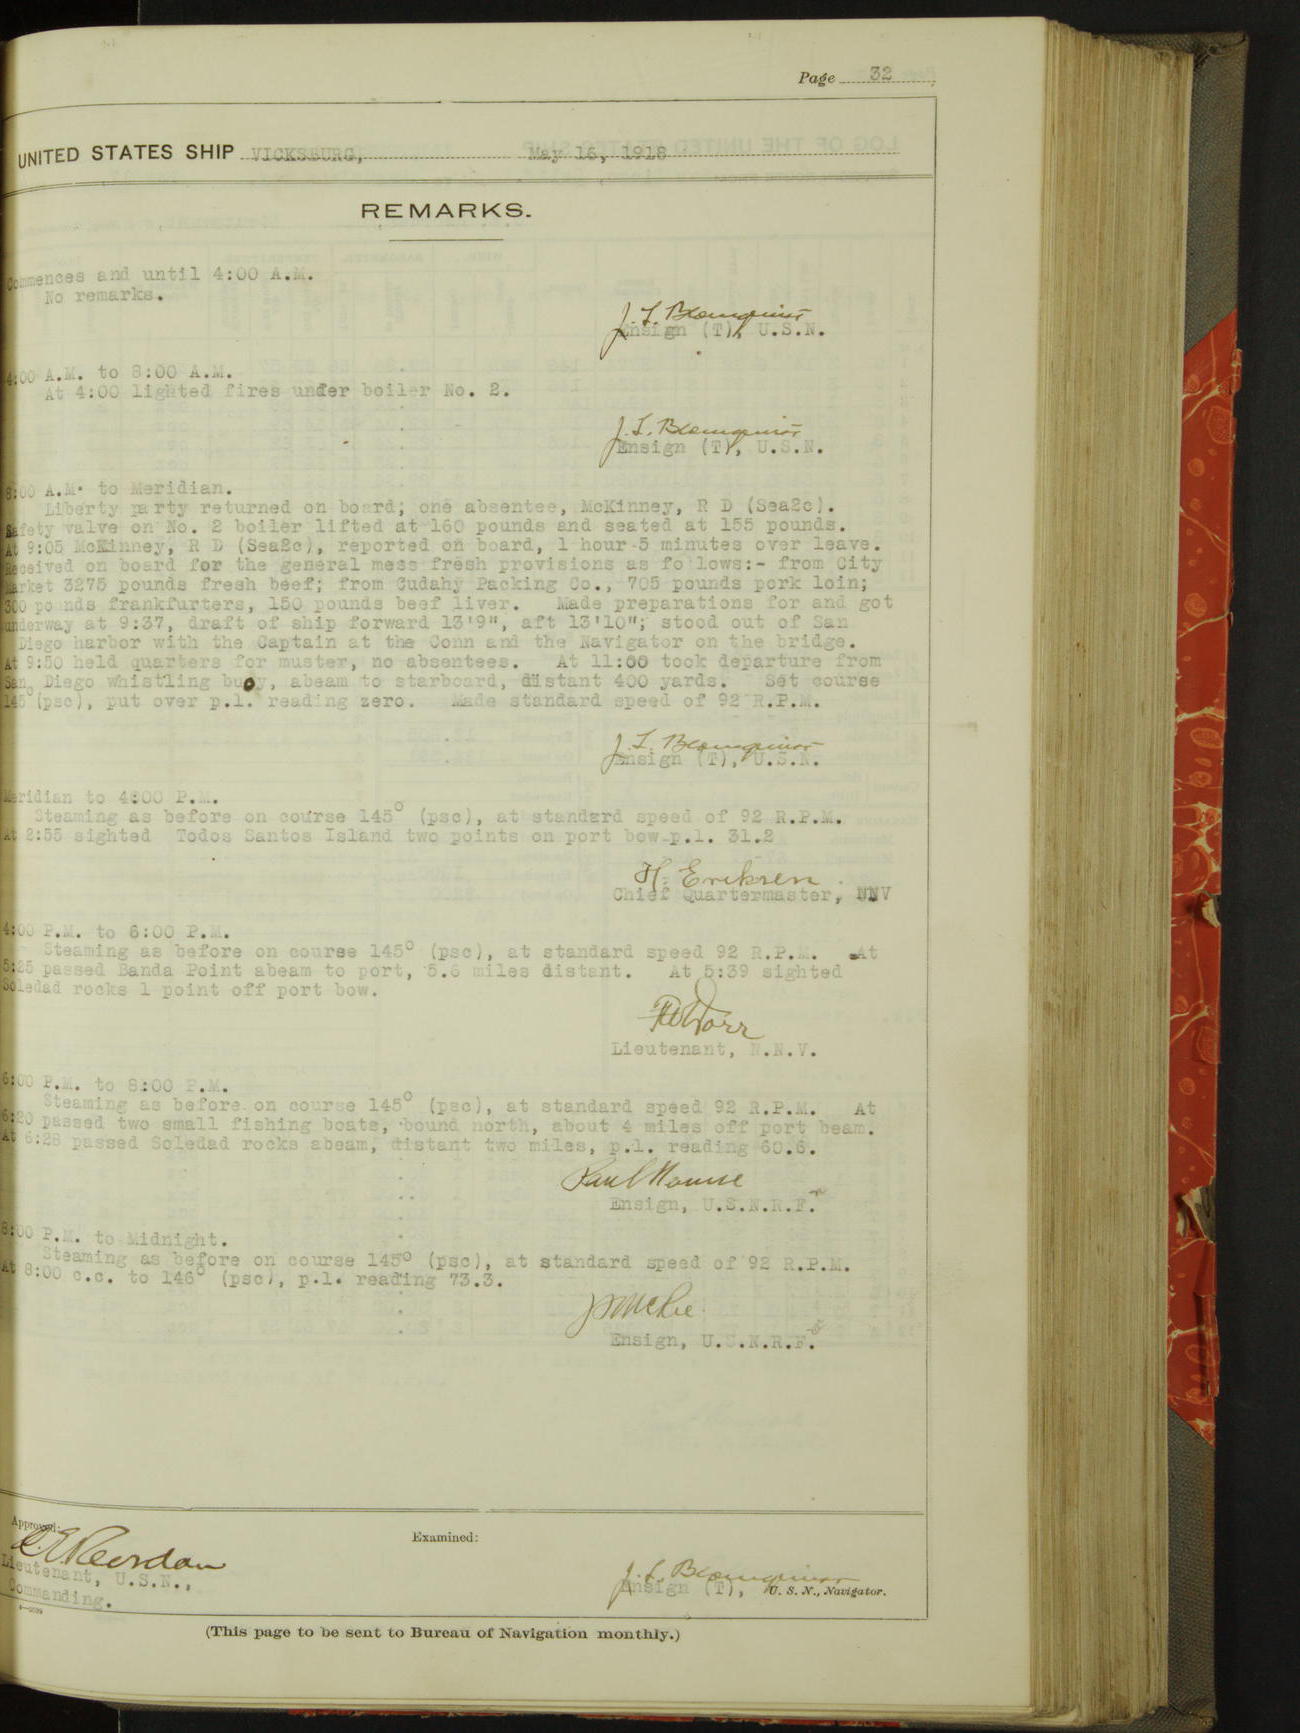 Page 32
UNITED STATES SHIP VICKSBURG, May 16, 1918
REMARKS.
Commences and until 4:00 A.M.
No remarks.
J. L. Blomquist
Ensign (T), U.S.N.
4:00 A.M. to 8:00 A.M.
At 4:00 lighted fires under boiler No. 2.
J. L. Blomquist
Ensign (T), U.S.N.
8:00 A.M. to Meridian.
Liberty party returned on board; one absentee, McKinney, R D (Sea2c).
Safety valve on No. 2 boiler lifted at 160 pounds and seated at 155 pounds.
At 9:05 McKinney, R D (Sea2c), reported on board, 1 hour 5 minutes over leave.
Received on board for the general mess fresh provisions as fo lows:- from City
Market 3275 pounds fresh beef; from Cudahy Packing Co., 705 pounds pork loin;
300 po nds frankfurters, 150 pounds beef liver. Made preparations for and got
underway at 9:37, draft of ship forward 13'9", aft 13'10"; stood out of San
Diego harbor with the Captain at the Conn and the Navigator on the bridge.
At 9:50 held quarters for muster, no absentees. At 11:00 took departure from
San Diego whistling buoy, abeam to starboard, distant 400 yards. Set course
145° (psc), put over p.l. reading zero. Made standard speed of 92 R.P.M.
J. L. Blomquist
Ensign (T), U.S.N.
Meridian to 4:00 P.M.
Steaming as before on course 145° (psc), at standard speed of 92 R.P.M.
At 2:55 sighted Todos Santos Island two points on port bow p.l. 31.2
H. Eriksen
Chief Quartermaster, NNV
4:00 P.M. to 6:00 P.M.
Steaming as before on course 145° (psc), at standard speed 92 R.P.M. At
5:25 passed Banda Point abeam to port, 5.6 miles distant. At 5:39 sighted
Soledad rocks 1 point off port bow.
Lieutenant, N.N.V.
6:00 P.M. to 8:00 P.M.
Steaming as before on course 145° (psc), at standard speed 92 R.P.M. At
6:20 passed two small fishing boats, bound north, about 4 miles off port beam.
At 6:28 passed Soledad rocks abeam, distant two miles, p.l. reading 60.6.
Paul
Ensign, U.S.N.R.F.
8:00 P.M. to Midnight.
Steaming as before on course 145° (psc), at standard speed of 92 R.P.M.
At 8:00 c.c. to 146° (psc), p.l. reading 73.3.
Ensign, U.S.N.R.F.
Approved:
Examined:
Lieutenant, U.S.N.,
Commanding.
J. L. Blomquist
Ensign (T), U. S. N., Navigator.
(This page to be sent to Bureau of Navigation monthly.)